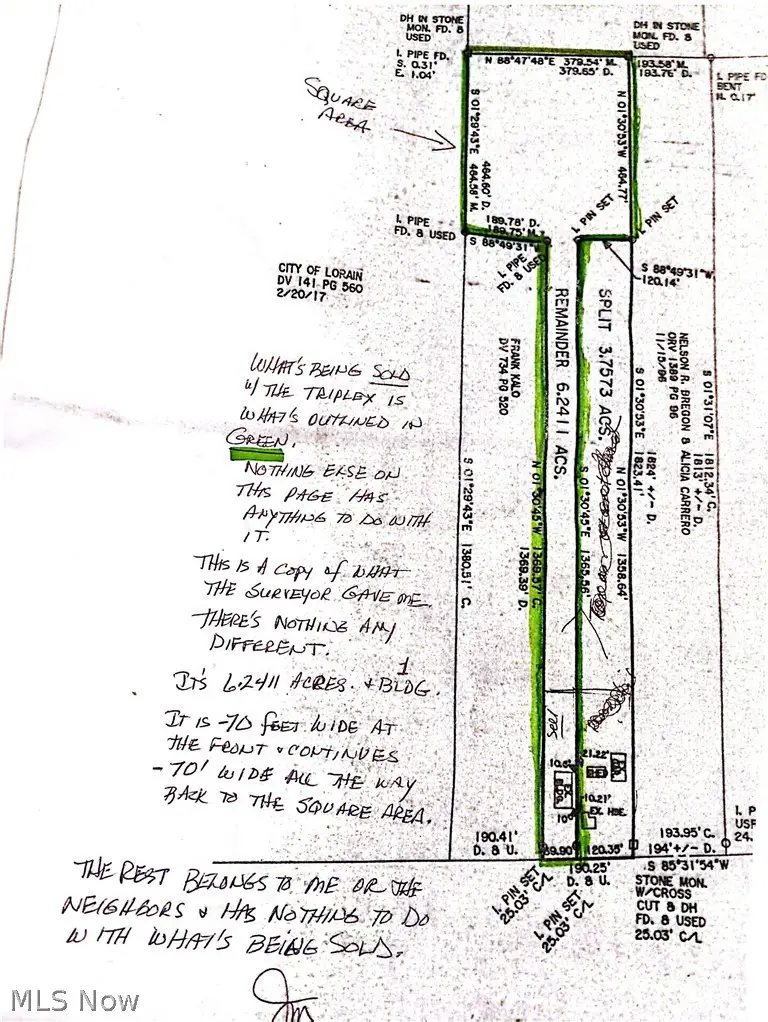 DH IN STONE
MON. FD. &
USED
DH IN STONE
MON. FD. &
USED
I. PIPE FD.
S. 0.31'
E. 1.04'
N 88°47'48"E 379.54' M.
379.65' D.
193.58' M.
193.76' D.
I. PIPE FD
BENT
N. 0.17'
SQUARE
AREA
S 01°29'43"E 464.58' M.
464.60' D.
N 01°30'53"W 464.77'
I. PIPE
FD. & USED
189.78' D.
189.75' M.
S 88°49'31"W
I. PIPE
FD. & USED
I. PIN SET
I. PIN SET
S 88°49'31"W
120.14'
CITY OF LORAIN
DV 141 PG 560
2/20/17
FRANK KALO
DV 734 PG 520
REMAINDER 6.2411 ACS.
SPLIT 3.7573 ACS.
NELSON R. BREGON & ALICIA CARRERO
ORV 1389 PG 96
11/15/96
S 01°31'07"E 1812.34' C.
1813' +/- D.
S 01°30'53"E 1824' +/- D.
1823.41'
S 01°29'43"E 1380.51' C.
N 01°30'45"W 1369.37' C.
1369.39' D.
S 01°30'45"E 1365.56'
N 01°30'53"W 1358.64'
WHAT'S BEING SOLD
W/ THE TRIPLEX IS
WHAT'S OUTLINED IN
GREEN.
NOTHING ELSE ON
THIS PAGE HAS
ANYTHING TO DO WITH
IT.
THIS IS A COPY OF WHAT
THE SURVEYOR GAVE ME.
THERE'S NOTHING ANY
DIFFERENT.
IT'S 6.2411 ACRES. + 1 BLDG.
IT IS ~70 FEET WIDE AT
THE FRONT + CONTINUES
~70' WIDE ALL THE WAY
BACK TO THE SQUARE AREA.
THE REST BELONGS TO ME OR THE
NEIGHBORS & HAS NOTHING TO DO
WITH WHAT'S BEING SOLD.
Jm
10.6'
21.22'
SHED
EX.
BLDG.
10.21'
EX. HSE.
10'
190.41'
D. & U.
69.90'
120.35'
190.25'
D. & U.
193.95' C.
194' +/- D.
S 85°31'54"W
STONE MON.
W/CROSS
CUT & DH
FD. & USED
25.03' C/L
I. PIN SET
25.03' C/L
I. PIN SET
25.03' C/L
I. P
USE
24.
MLS Now